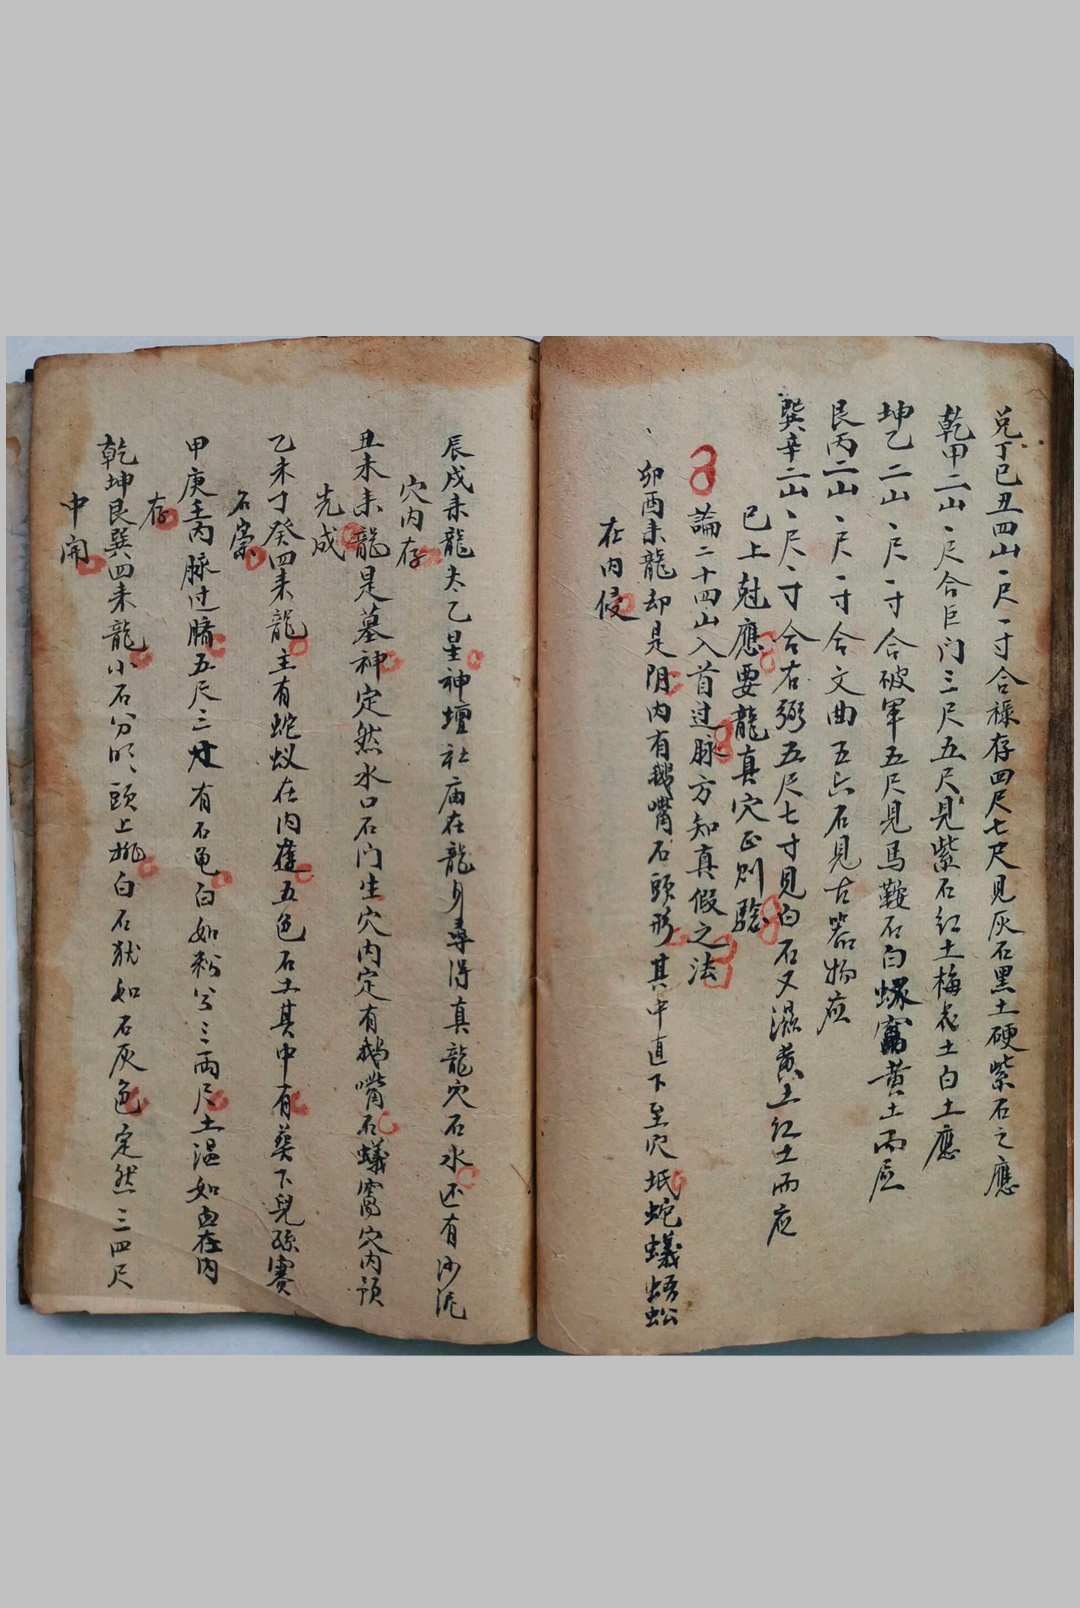 兑丁巳丑四山一尺一寸合祿存四尺七尺見灰石黑土硬紫石之應
乾甲二山一尺合巨门三尺五尺見紫石红土梅花土白土應
坤乙二山一尺一寸合破军五尺見馬鞍石白蟻窩黄土而应
艮丙二山一尺一寸合文曲五六石見古器物应
巽辛二山一尺一寸合右弼五尺七寸見白石又濕黄土红土而应
已上尅應要龍真穴正则驗
論二十四山入首过脉方知真假之法
卯酉来龍却是阴内有鹅嘴石頭形其中直下至穴坻蛇蟻蜈蚣
在内侵
辰戌来龍太乙星神壇社庙在龍身尋得真龍穴石水还有沙泥
穴内存
丑未来龍是墓神定然水口石门生穴内定有鹅嘴石蟻窩穴内须
先成
乙未丁癸四来龍主有蛇蚁在内藏五色石土其中有葵下兒孫賽
石崇
甲庚壬丙脉过臍五尺三寸有石龟白如粉兮三兩尺土温如血在内
存
乾坤艮巽四来龍小石分明頭上挑白石狀如石灰色定然三四尺
中開